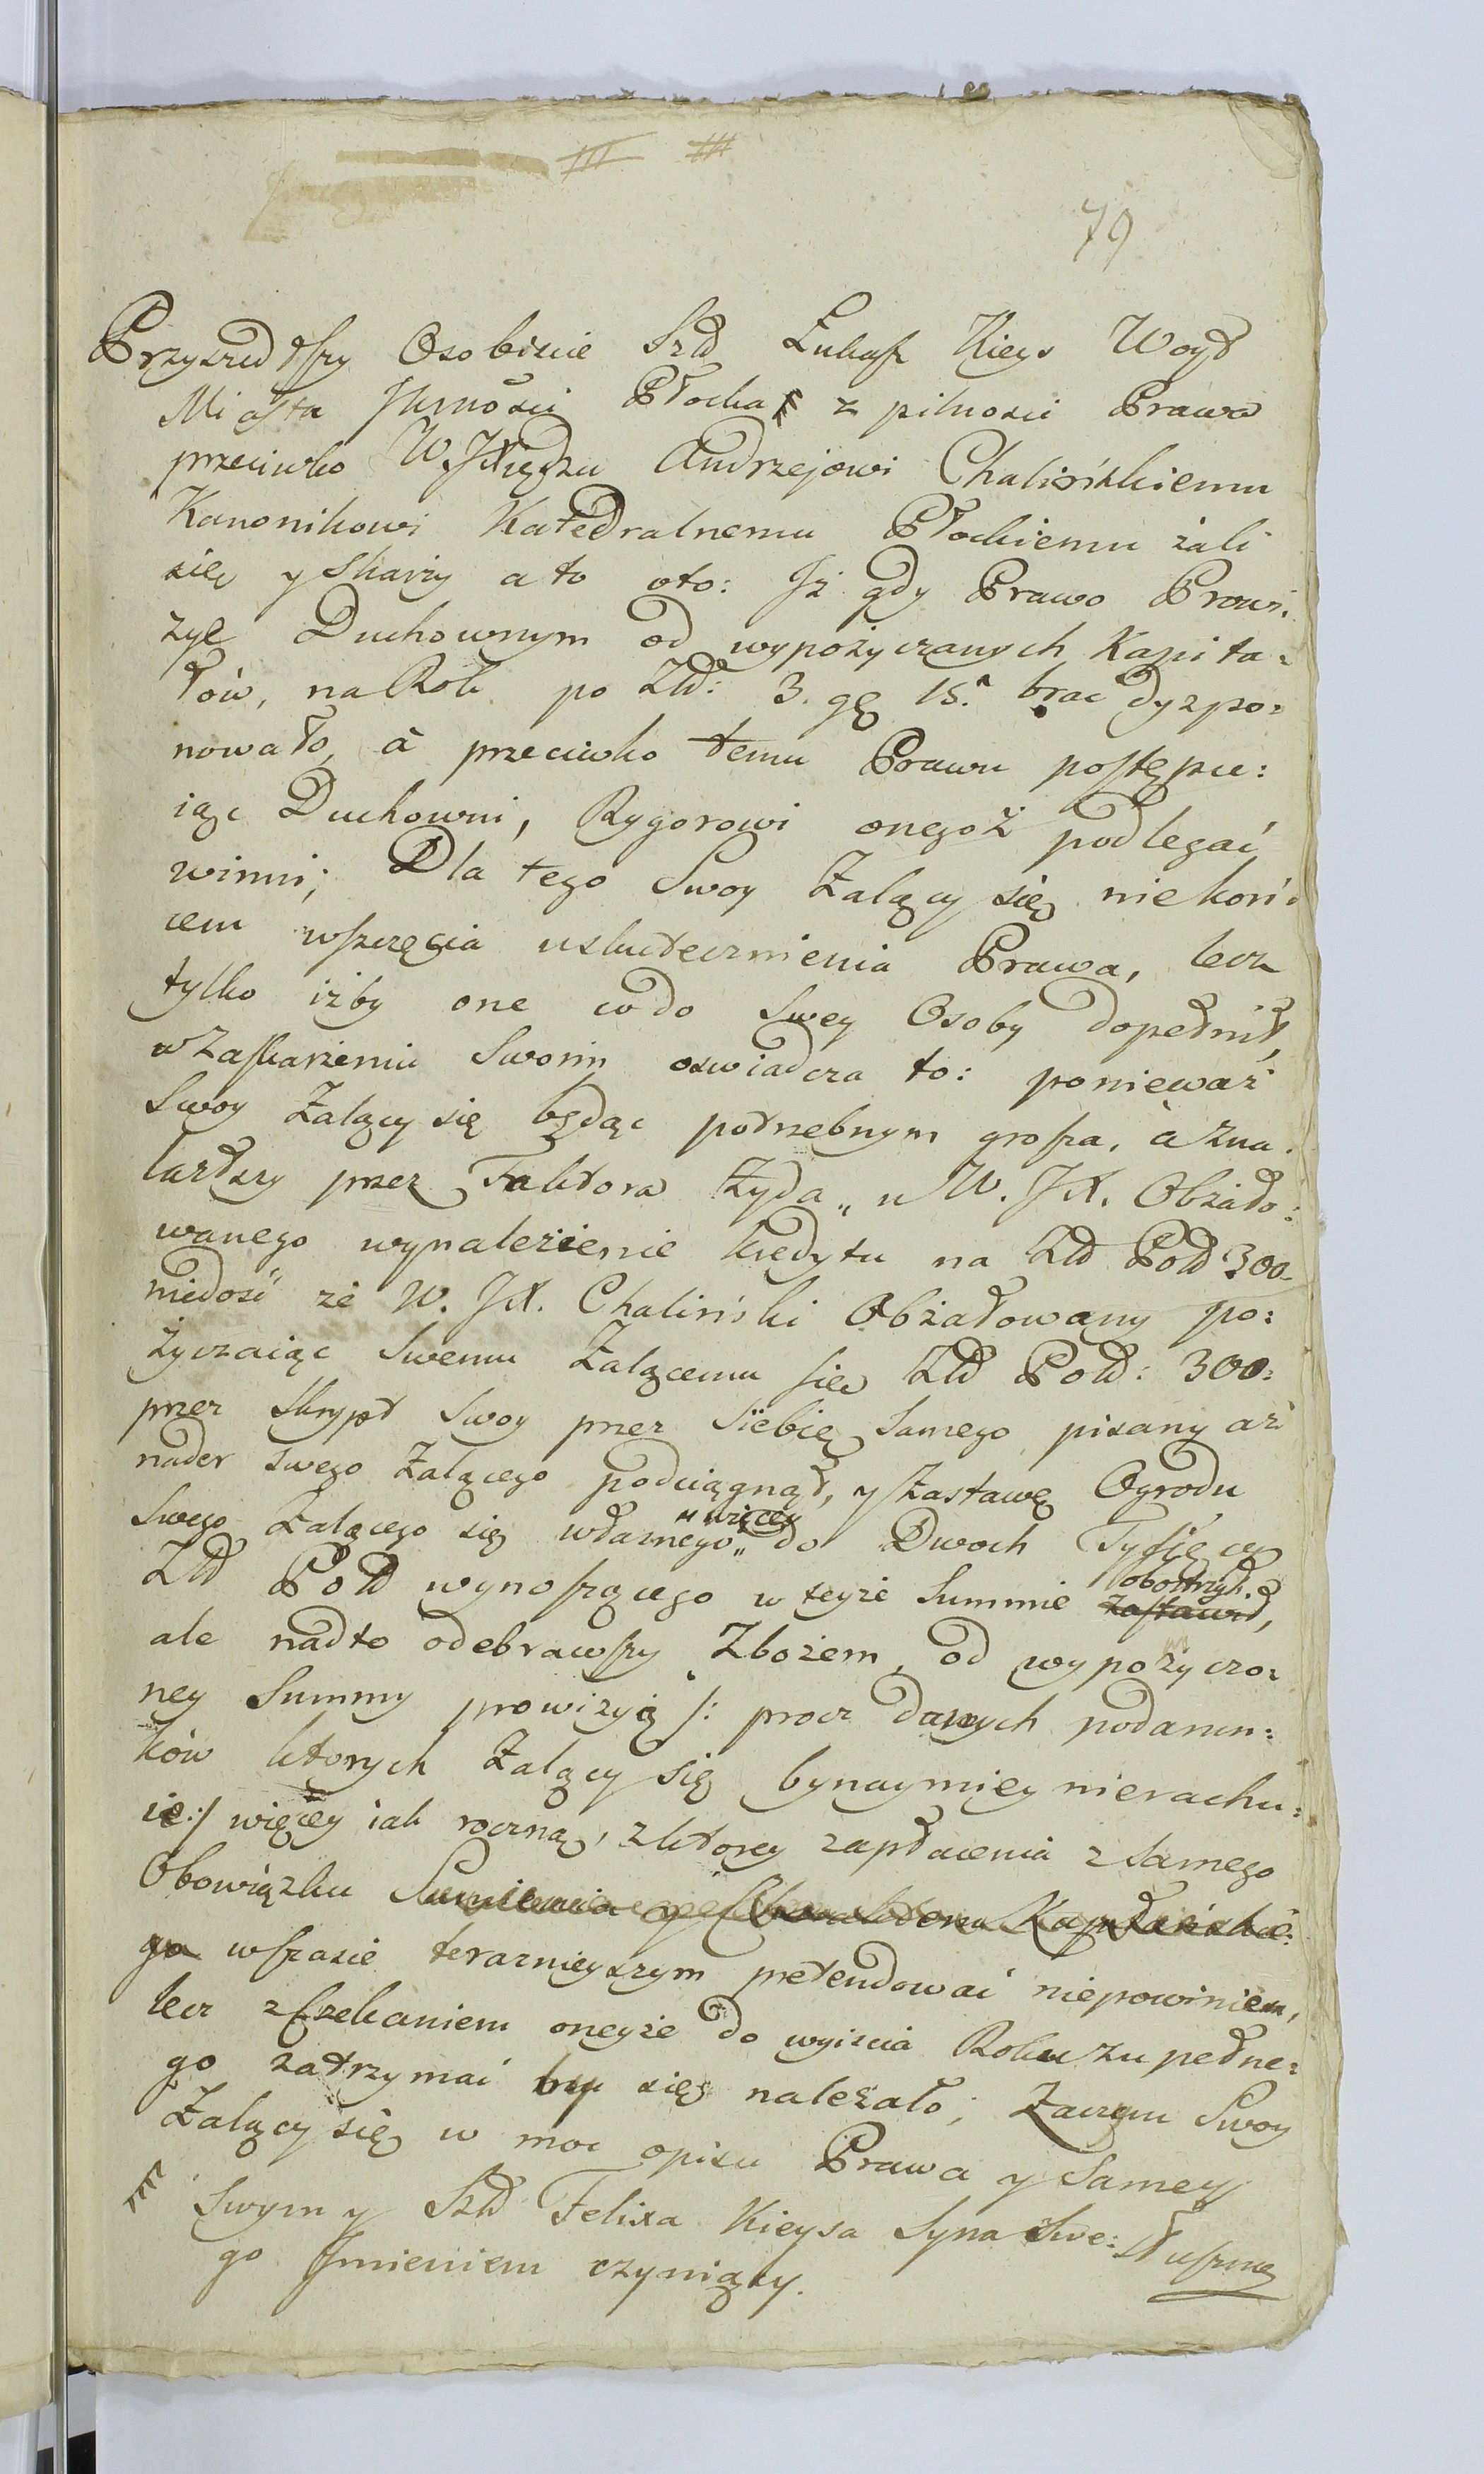 79
Przyszedłszy Osobiscie Szld Łukasz Kieys Woyt
Miasta JKmości Płocka z pilnosci Prawa
przeciwko W. JXiędzu Andrzejowi Chalińskiemu
Kanonikowi Katedralnemu Płockiemu żali
się y Skarży a to oto: Iż gdy Prawo Prowi:
zyę Duchownym od wypożyczanych Kapita:
łów, na Rok po Złł: 3. gr 15. brac dyspo:
nowało, à przeciwko temu Prawu postępu:
iąc Duchowni, Rygorowi onegoż podlegać
winni; Dla tego Swoy Zalący się nie koń:
cem wszczęcia uskutecznienia Prawa, lecz
tylko iżby one co do Swey Osoby dopełnił,
w Zaskarżeniu Swoim oswiadcza to: ponieważ
Swoy Zalący się będąc potrzebnym grosza, à zna:
lazłszy przez Faktora Żyda „ u W. JX. Obżało:
wanego wynaleźienie kredytu na Złł Poll 300
niedość że W. JX. Chaliński Obżałowany po:
życzaiąc Swemu Zalącemu się Złł Poll: 300:
przez Skrypt Swoy przez Siebie Samego pisany aż
nader swego Zalącego podciągnął, y Zastawę Ogrodu
Swego Zalącego się własnego „ więcey do Dwoch Tysięcy
Złł Poll wynoszącego w teyże Summie zastawił, obostrzył,
ale nadto odebrawszy Zbożem, od wypożyczo:
ney Summy prowizyią /: procz danych podarun:
ków ktorych Zalący się bynaymiey nierachu:
ie:/ więcey iak roczną, z ktorey zapłacenia z samego
Obowiązku Sumienia y Kapłańskie:
go w czasie teraznieyszym pretendować niepowinien,
lecz z czekaniem oneyże do wyiscia Roku zupełne:
go zatrzymać by się należało; Zaczym Swoy
Zalący się w moc opisu Prawa y Samey
Swym y Szld Felixa Kieysa Syna Swe:
go Imieniem czyniący.
Słuszne